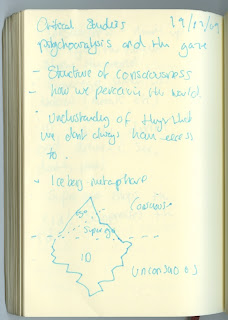 Critical Studies 19/12/09
psychoanalysis and the gaze
- Structure of consciousness
- how we perceive the world.
- understanding of things that
we don't always have access
to.
- Iceberg metaphore
Conscious
Superego
ID
Unconscious